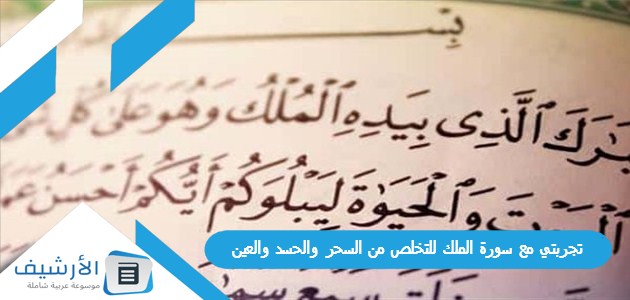 بِسْـ
بَٰرَكَ ٱلَّذِى بِيَدِهِ ٱلْمُلْكُ وَهُوَ عَلَىٰ كُلِّ
وَٱلْحَيَوٰةَ لِيَبْلُوَكُمْ أَيُّكُمْ أَحْسَنُ عَمَ
تجربتي مع سورة الملك للتخلص من السحر والحسد والعين
الأرشيف
موسوعة عربية شاملة